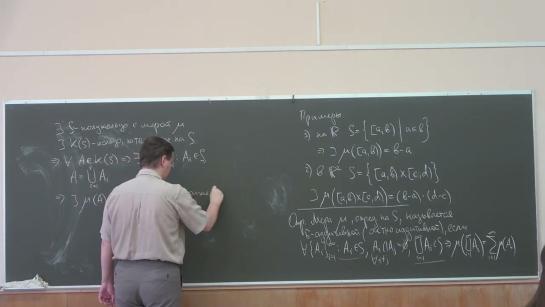 ∃ S-полукольцо с мерой μ
∃ K(S)- кольцо, на S
⇒ ∀ A∈K(S) ⇒ ∃ Aᵢ∈S
A = ⋃ Aᵢ
⇒ ∃ μ(A)
Примеры
1) на ℝ S={[a,b) | a≤b}
⇒ ∃ μ([a,b))=b-a
2) в ℝ² S={[a,b)×[c,d)}
∃ μ([a,b)×[c,d))=(b-a)·(d-c)
Опр. Мера μ, опред на S, называется
σ-аддитивной (счетно аддитивной), если
∀{Aᵢ}: Aᵢ∈S, Aᵢ∩Aⱼ=∅ ∐Aᵢ∈S ⇒ μ(∐Aᵢ)=∑μ(Aᵢ)